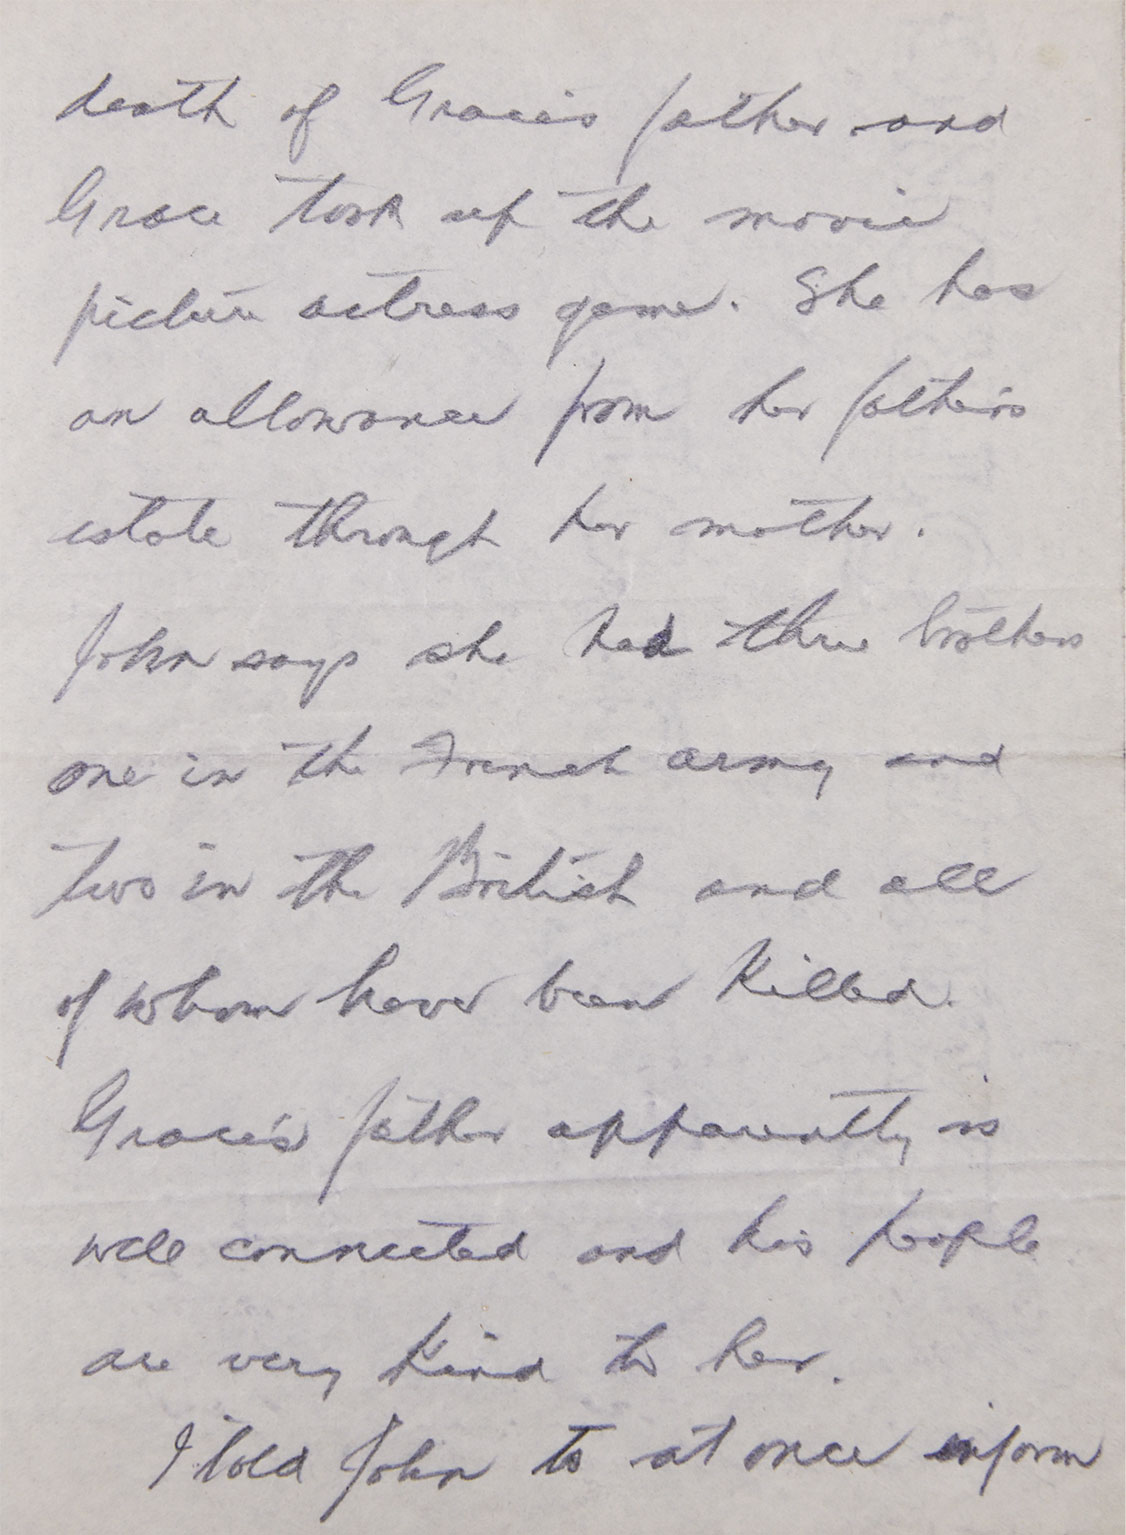 death of Grace's father and
Grace took up the movie
picture actress game. She has
an allowance from her father's
estate through her mother.
John says she had three brothers
one in the French army and
two in the British and all
of whom have been killed.
Grace's father apparently is
well connected and his people
are very kind to her.
I told John to at once inform